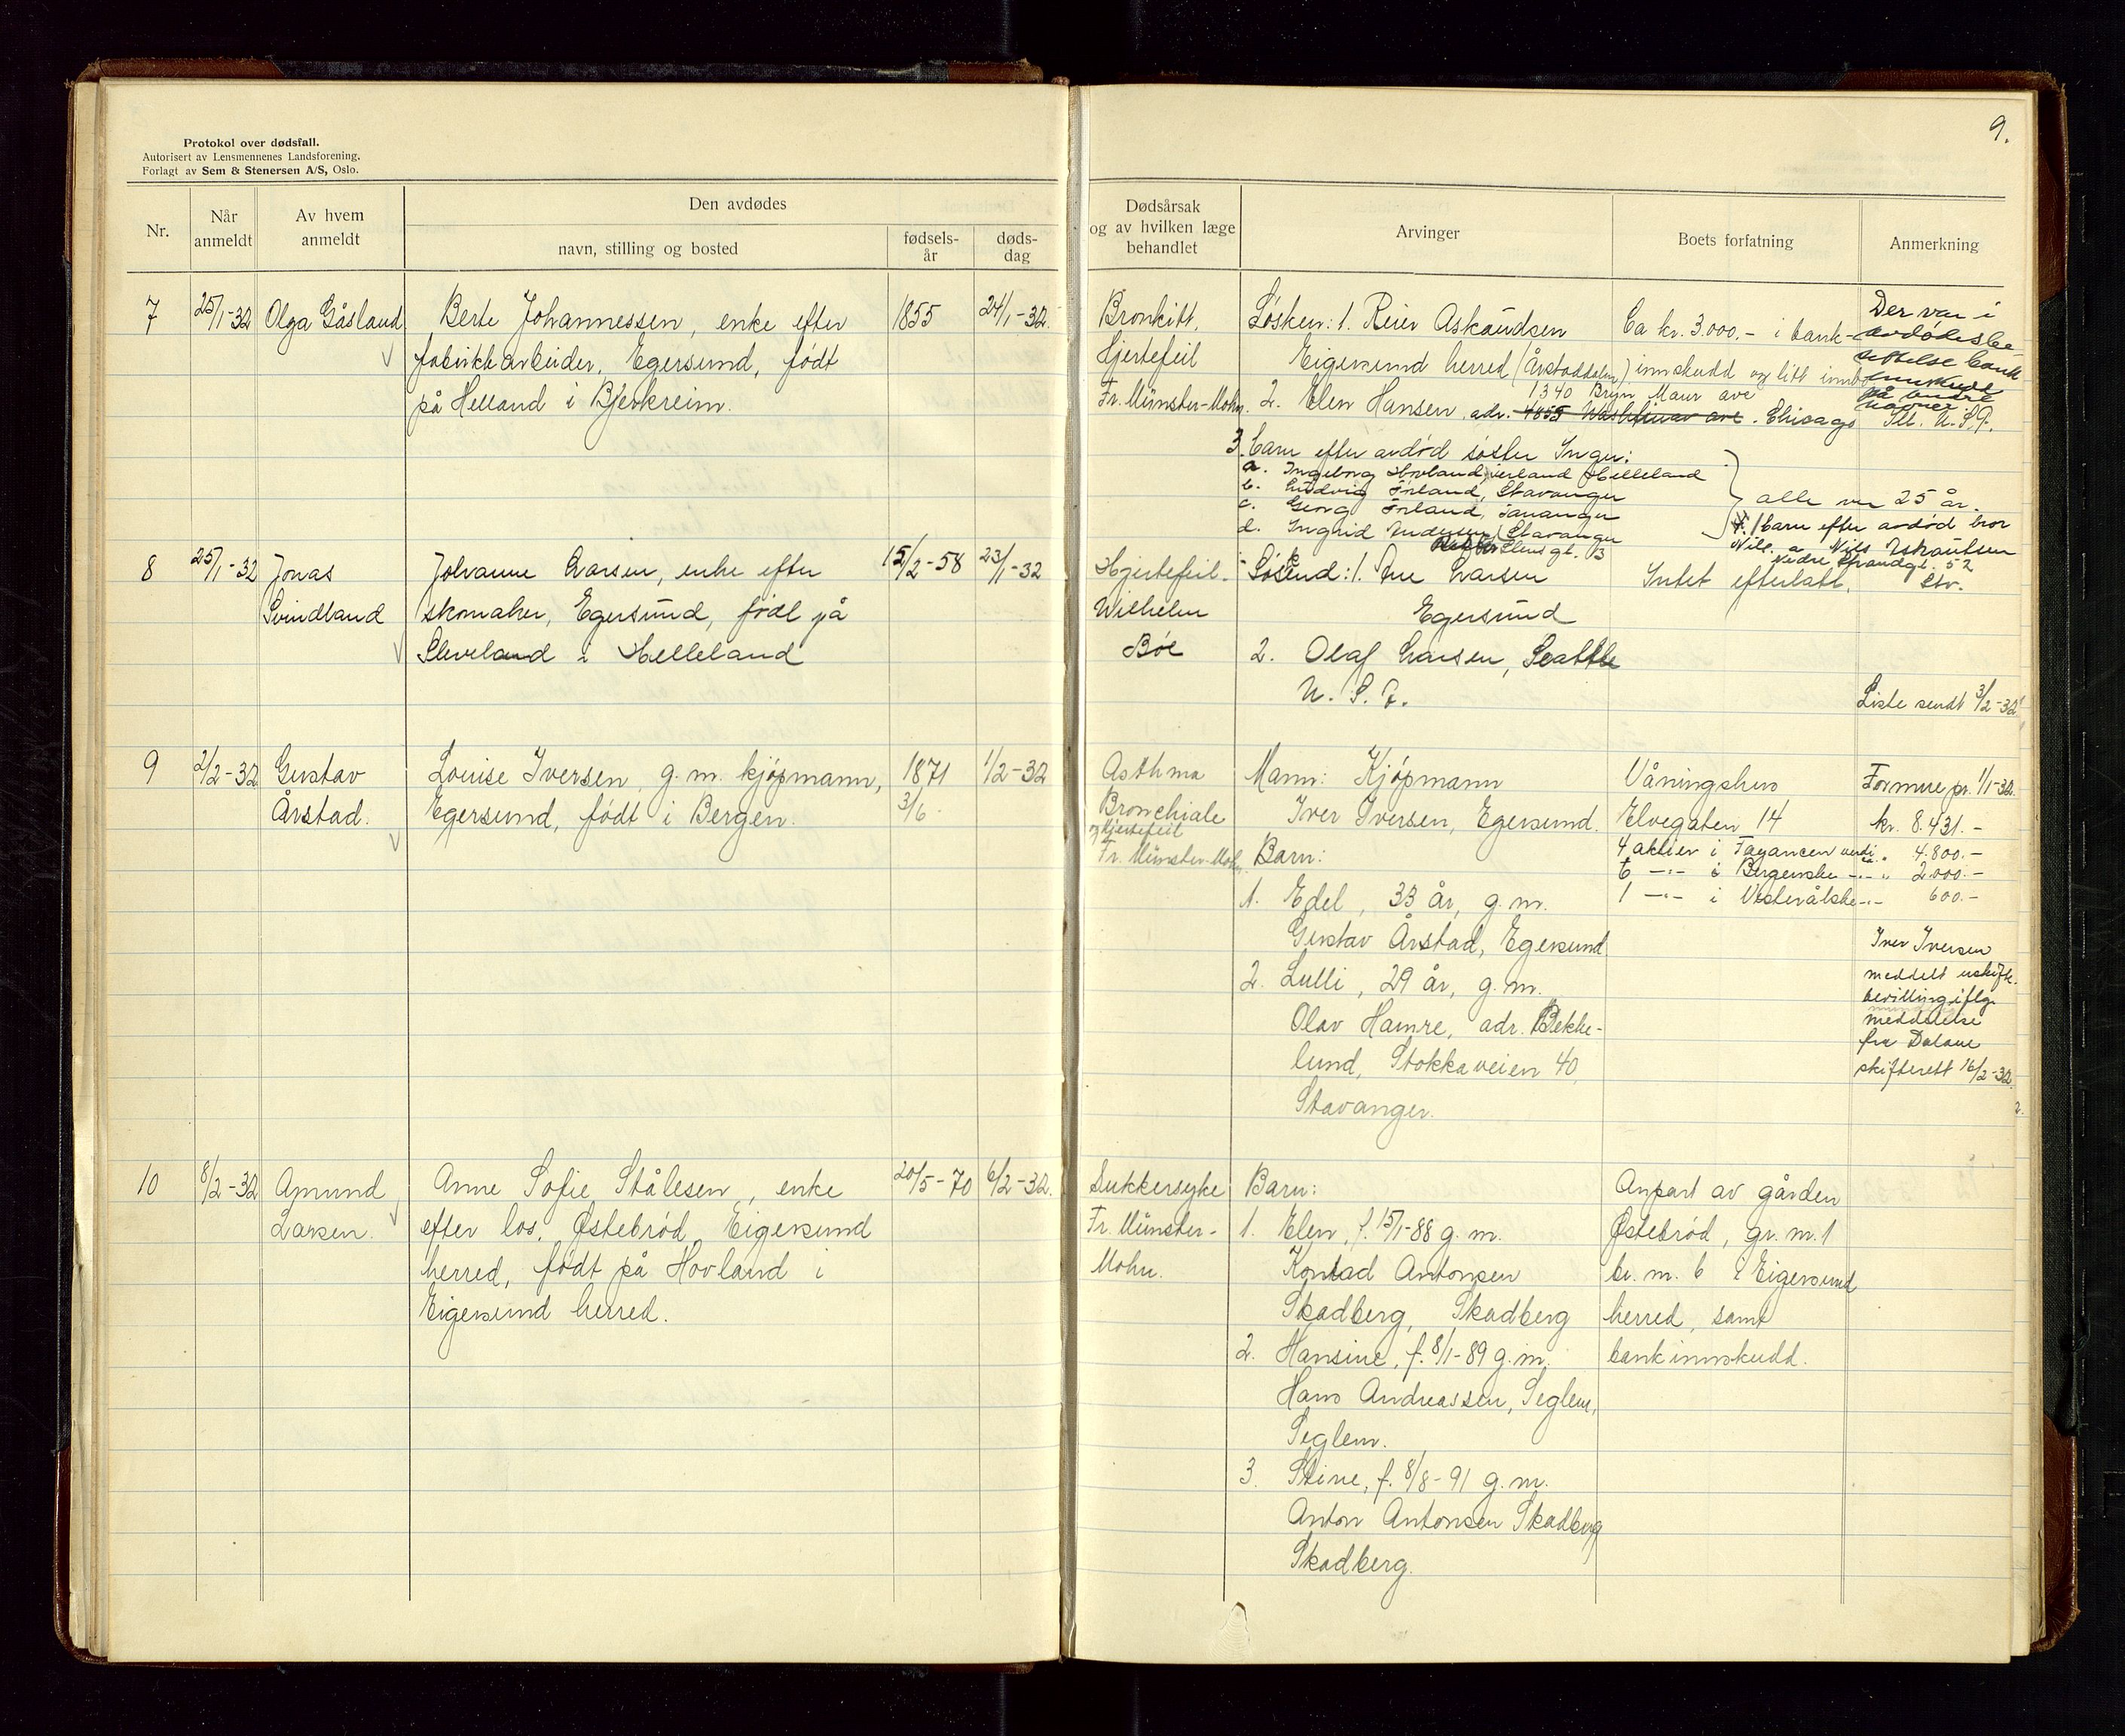 9.
Protokol over dødsfall.
Autorisert av Lensmennenes Landsforening.
Forlagt av Sem & Stenersen A/S, Oslo.
Nr.
Når anmeldt
Av hvem anmeldt
Den avdødes
navn, stilling og bosted
fødsels-år
døds-dag
Dødsårsak og av hvilken læge behandlet
Arvinger
Boets forfatning
Anmerkning
7
25/1-32
Olga Gåsland
Berte Johannessen, enke efter
fabrikkarbeider, Egersund, født
på Helland i Bjerkreim.
1855
24/1-32.
Bronkitt,
Hjertefeil
Fr. Münster-Mohn.
Søsken: 1. Reier Askoudsen
Eigersund herred (Årstaddalen)
1340 Bryn Maur ave
2. Elen Hansen, adr. 4855 ave. Chicago Ill. U.S.A.
3. barn efter avdød søster Inger:
a. Ingeborg Hovland, Helleland
b. Ludvig Føland, Stavanger
c. Georg Føland, Tananger
d. Ingrid Andersen, Stavanger
alle over 25 år.
4. 1 barn efter avdød bror
Nils. a Nils
Nedre Strandgt. 52
Stv.
Ca kr. 3.000.- i bank-
innskudd og litt innbo
Der var i
avdødes be
sittelse bank
innskudd
på andre
navner
8
25/1-32
Jonas
Svindland
Johanne Larsen, enke efter
skomaker, Egersund, født på
Sleveland i Helleland
15/2-58
23/1-32
Hjertefeil.
Wilhelm
Bøe
1. Larsen
Egersund
2. Olaf Larsen, Seattle
U. S. A.
Intet efterlatt.
Liste sendt 3/2-32
9
2/2-32
Gustav
Årstad.
Louise Iversen, g.m. kjøpmann,
Egersund, født i Bergen.
1871
3/6
1/2-32
Asthma
Bronchiale
og Hjertefeil
Fr. Münster-Mohn
Mann: Kjøpmann
Iver Iversen, Egersund.
Barn:
1. Edel, 33 år, g.m.
Gustav Årstad, Egersund
2. Lulli, 29 år, g.m.
Olav Hamre, adr. Bekke-
lund, Stokkaveien 40,
Stavanger.
Våningshus
Elvegaten 14
4 aktier i Fayancen verdi ca. " 4.800.-
6 -"- i Bergenske -"- " 2.000.-
1 -"- i Vesteralske -"- 600.-
Formue pr. 1/1-32.
kr. 8.431.-
Iver Iversen
meddelt uskifte-
bevilling iflg.
meddelelse
fra Dalane
skifterett 16/2-32.
10
8/2-32
Amund
Larsen.
Anne Sofie Stålesen, enke
efter los, Østebrød, Eigersund
herred, født på Hovland i
Eigersund herred.
20/5-70
6/2-32.
Sukkersyke
Fr. Münster-
Mohn.
Barn:
1. Elen, f. 15/1-88 g.m.
Konrad Antonsen
Skadberg, Skadberg
2. Hansine, f. 8/1-89 g.m.
Hans Andreassen, Seglem,
Seglem.
3. Stine, f. 8/8-91 g.m.
Anton Antonsen Skadberg
Skadberg.
Anpart av gården
Østebrød, gr. nr. 1
br. nr. 6 i Eigersund
herred, samt
bankinnskudd.